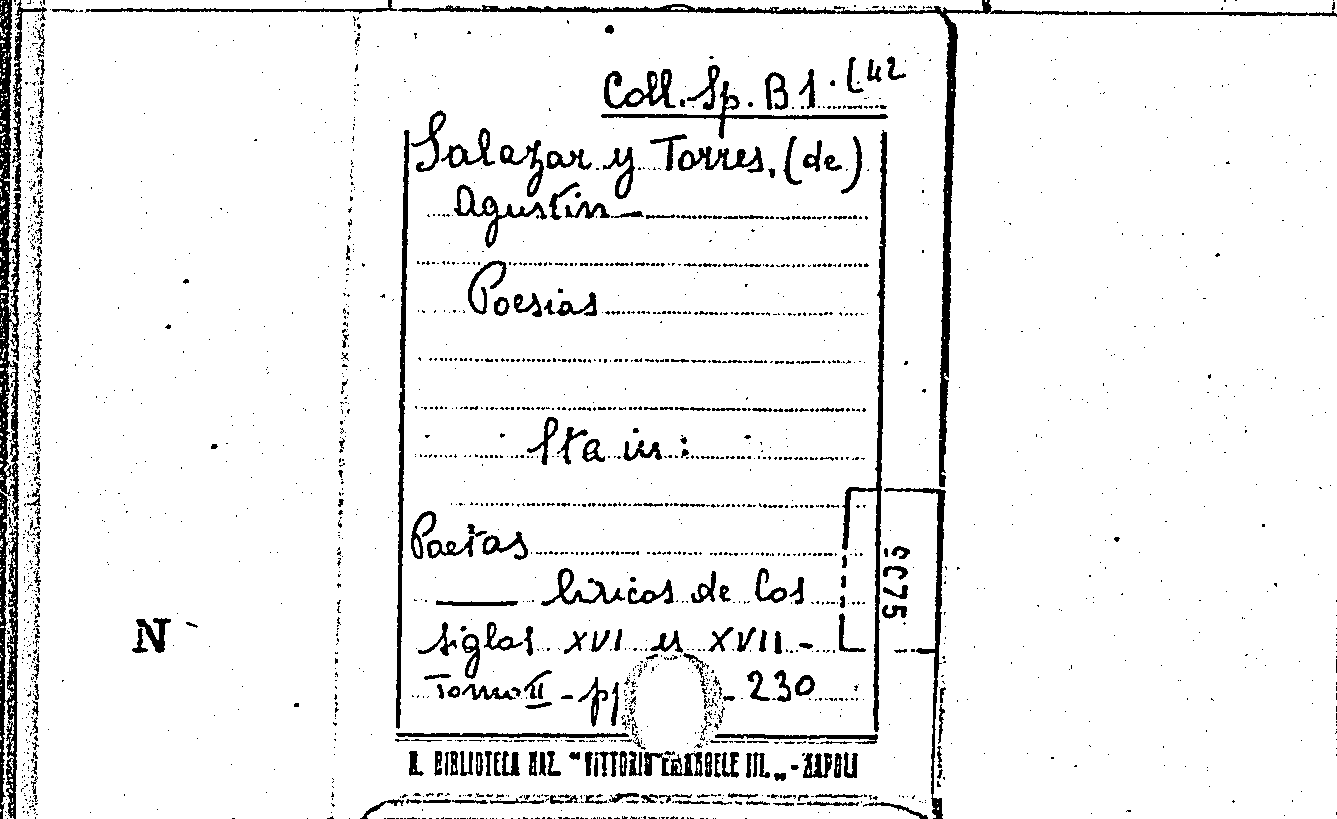 Coll. Sp. B 1. (42
Salazar y Torres, (de)
Agustin
Poesias
Sta in:
Poetas
liricos de los
siglos XVI y XVII -
Tomo II - pp - 230
R. BIBLIOTECA NAZ. "VITTORIO EMANUELE III." - NAPOLI
N